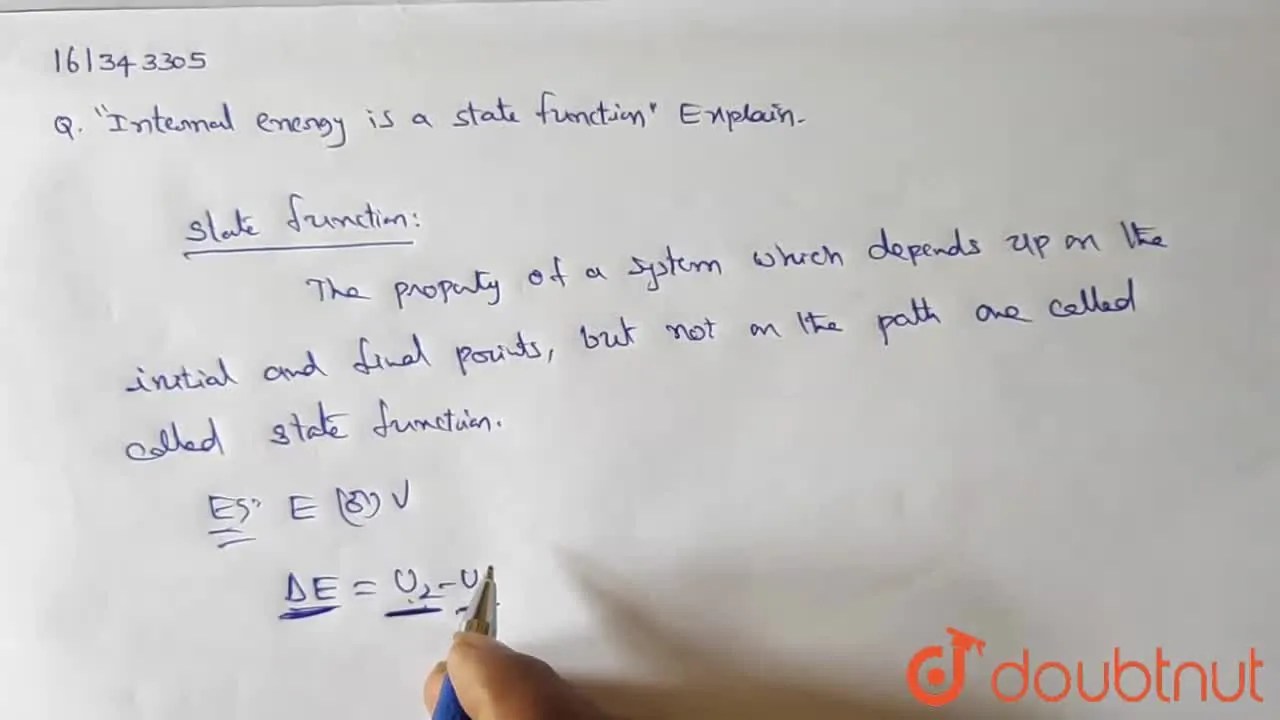 161343305
Q. "Internal energy is a state function" Explain.
State function:
The property of a system which depends up on the
initial and final points, but not on the path are called
called state function.
Eg: E (or) U
ΔE = U₂ - U
doubtnut